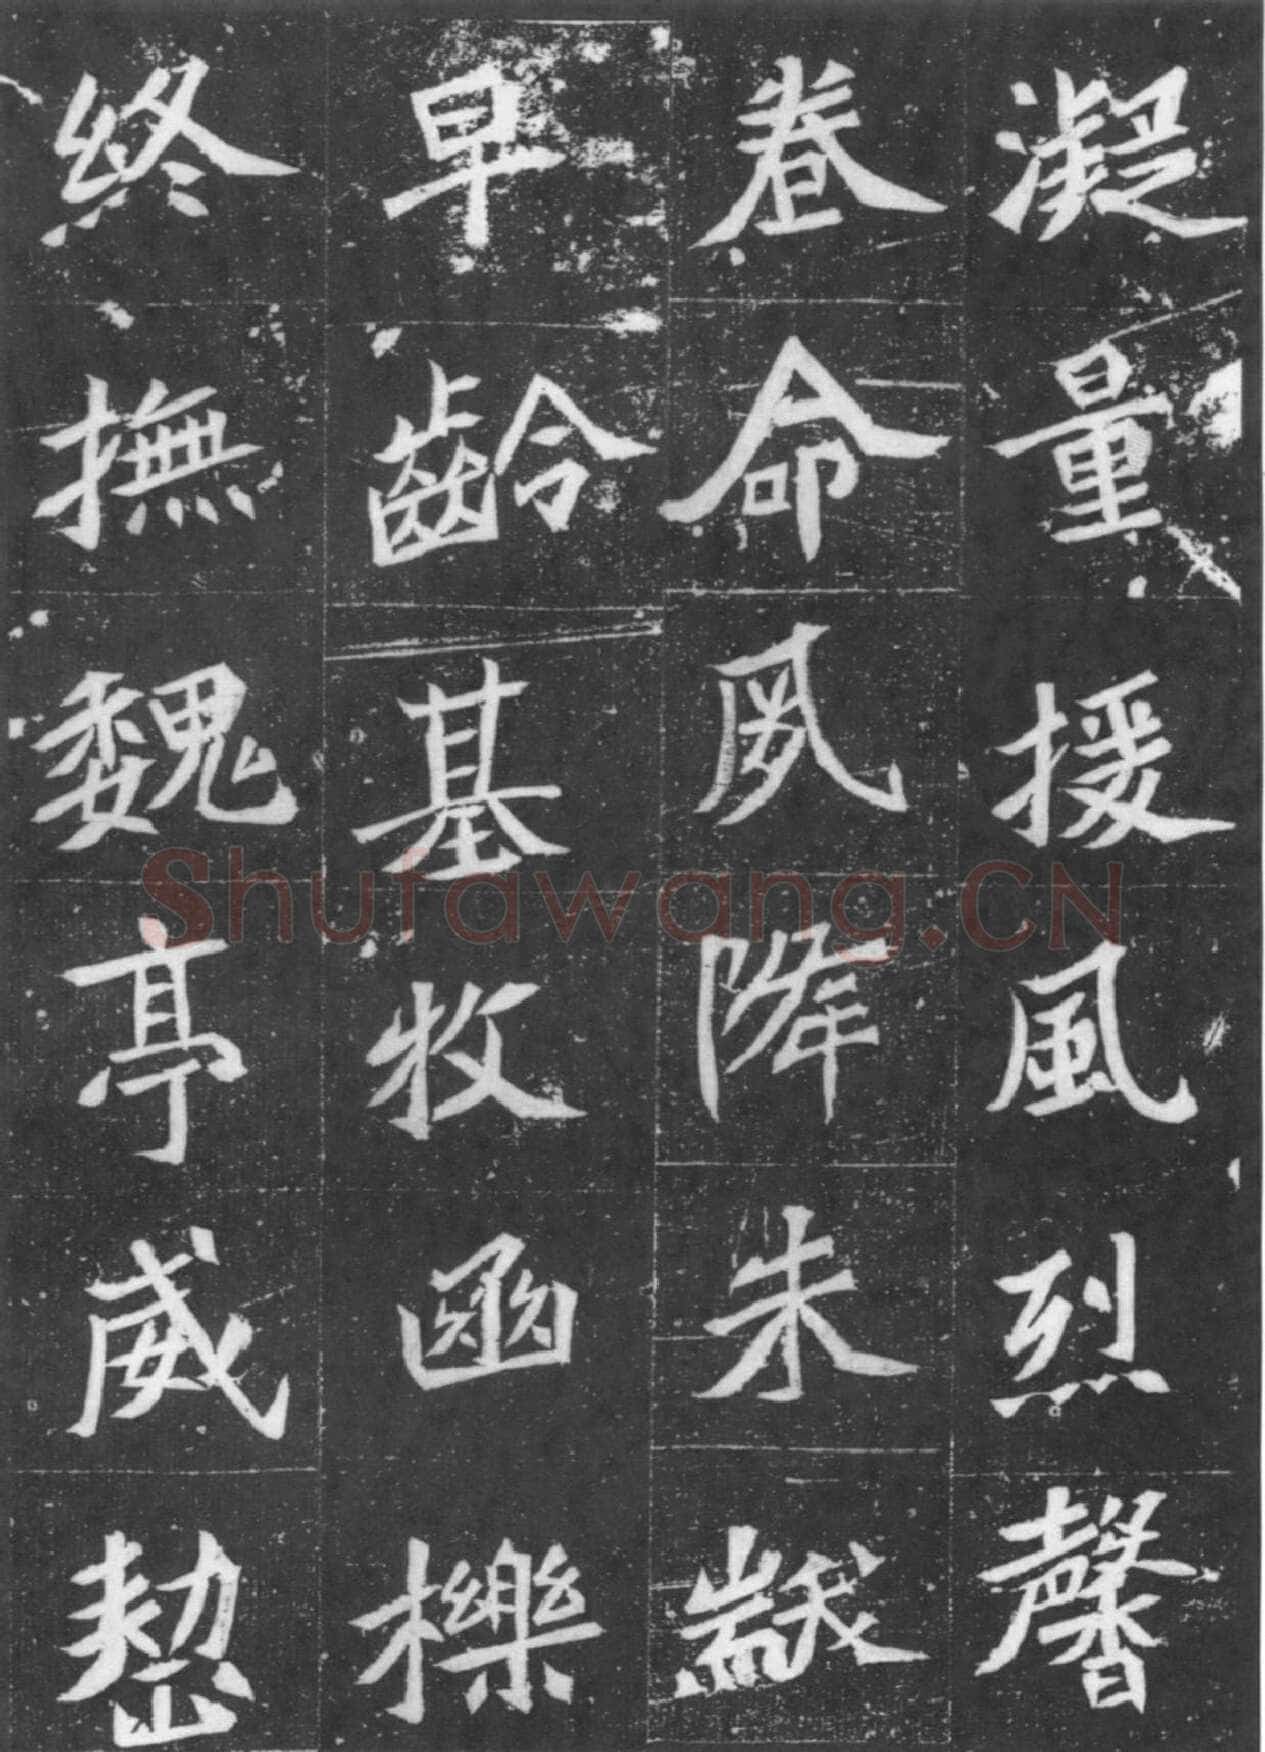 凝量援風烈馨
眷命夙降朱黻
早齡基牧函櫟
終撫魏亭威整
Shufawang.CN